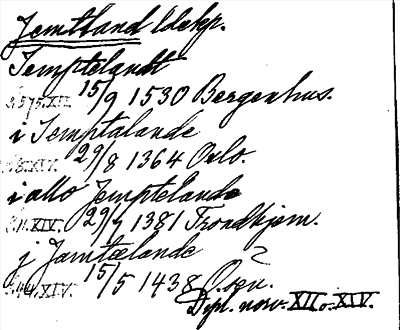 Jemtland ldskp.
Temptelandt
S. 575. XII. 15/9 1530 Bergenhus.
i Jemptalande
S. 8. XIV. 29/8 1364 Oslo.
i allo Jemptelande
S. 11. XIV. 29/7 1381 Trondhjem.
j Jamtælande
S. 44. XIV. 15/5 1438 Osen.
Dipl. norv. XII o. XIV.